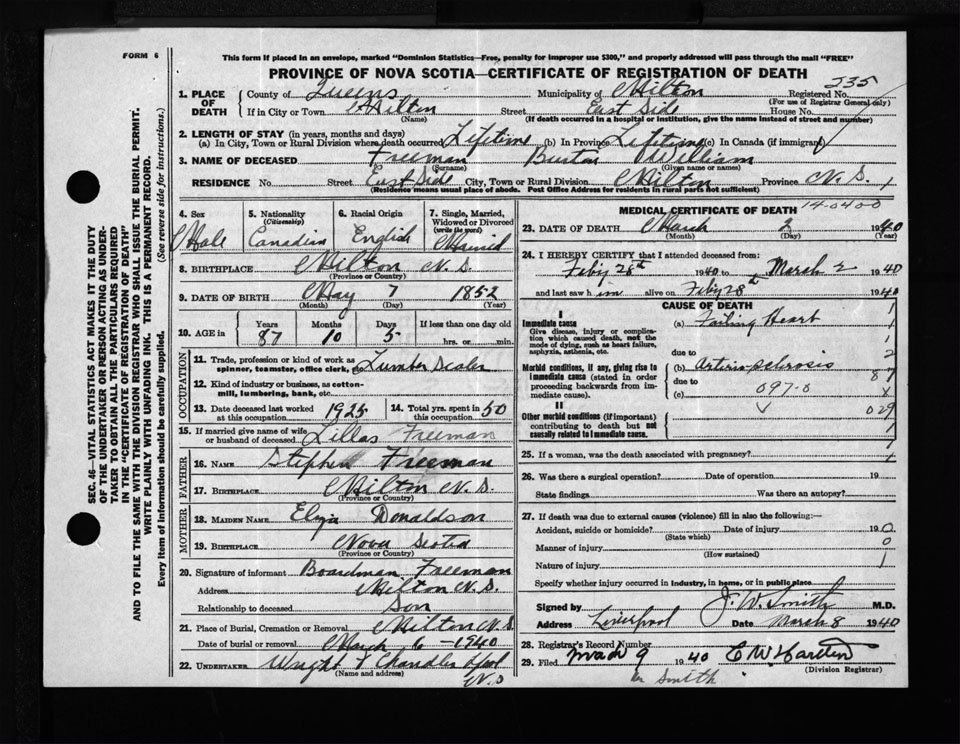 FORM 6
This form if placed in an envelope, marked "Dominion Statistics—Free, penalty for improper use $300," and properly addressed will pass through the mail "FREE"
PROVINCE OF NOVA SCOTIA—CERTIFICATE OF REGISTRATION OF DEATH
235
1. PLACE OF DEATH County of Queens Municipality of Milton Registered No.
(For use of Registrar General only)
If in City or Town Milton Street East Side House No.
(Name) (If death occurred in a hospital or institution, give the name instead of street and number)
2. LENGTH OF STAY (in years, months and days)
(a) In City, Town or Rural Division where death occurred Lifetime (b) In Province Lifetime (c) In Canada (if immigrant)
3. NAME OF DECEASED Freeman Burton William
(Surname) (Given name or names)
RESIDENCE No. Street East Side City, Town or Rural Division Milton Province N.S.
(Residence means usual place of abode. Post Office Address for residents in rural parts not sufficient)
4. Sex Male
5. Nationality (Citizenship) Canadian
6. Racial Origin English
7. Single, Married, Widowed or Divorced (write the word) Married
8. BIRTHPLACE Milton N.S.
(Province or Country)
9. DATE OF BIRTH May 7 1852
(Month) (Day) (Year)
10. AGE in Years Months Days If less than one day old
87 10 5 hrs. or min.
OCCUPATION
11. Trade, profession or kind of work as spinner, teamster, office clerk, etc. Lumber Dealer
12. Kind of industry or business, as cotton-mill, lumbering, bank, etc.
13. Date deceased last worked at this occupation 1925
14. Total yrs. spent in this occupation 50
15. If married give name of wife or husband of deceased Lillas Freeman
FATHER
16. NAME Stephen Freeman
17. BIRTHPLACE Milton N.S.
(Province or Country)
MOTHER
18. MAIDEN NAME Eliza Donaldson
19. BIRTHPLACE Nova Scotia
(Province or Country)
20. Signature of informant Boardman Freeman
Address Milton N.S.
Relationship to deceased Son
21. Place of Burial, Cremation or Removal Milton N.S.
Date of burial or removal March 6 - 1940
22. UNDERTAKER Wright & Chandler Lpool
(Name and address) N.S
MEDICAL CERTIFICATE OF DEATH
14-0400
23. DATE OF DEATH March 2 1940
(Month) (Day) (Year)
24. I HEREBY CERTIFY that I attended deceased from:
Feby 26th 1940 to March 2 1940
and last saw him alive on Feby 28th 1940
CAUSE OF DEATH
I
Immediate cause (a) Failing Heart
Give disease, injury or complication which caused death, not the mode of dying, such as heart failure, asphyxia, asthenia, etc.
due to
Morbid conditions, if any, giving rise to immediate cause (stated in order proceeding backwards from immediate cause). (b) Arteriosclerosis
due to
(c) 097-0
II
Other morbid conditions (if important) contributing to death but not causally related to immediate cause.
029
25. If a woman, was the death associated with pregnancy?
26. Was there a surgical operation? Date of operation 19
State findings Was there an autopsy?
27. If death was due to external causes (violence) fill in also the following:—
Accident, suicide or homicide? Date of injury 19
(State which)
Manner of injury
(How sustained)
Nature of injury
Specify whether injury occurred in industry, in home, or in public place
Signed by J. W. Smith M.D.
Address Liverpool Date March 8 1940
28. Registrar's Record Number
29. Filed March 9 1940 E W Hartlen
(Division Registrar)
Smith
SEC. 46—VITAL STATISTICS ACT MAKES IT THE DUTY
OF THE UNDERTAKER OR PERSON ACTING AS UNDER-
TAKER TO OBTAIN ALL THE PARTICULARS REQUIRED
IN THE "CERTIFICATE OF REGISTRATION OF DEATH"
AND TO FILE THE SAME WITH THE DIVISION REGISTRAR WHO SHALL ISSUE THE BURIAL PERMIT.
WRITE PLAINLY WITH UNFADING INK. THIS IS A PERMANENT RECORD.
Every item of information should be carefully supplied. (See reverse side for instructions.)